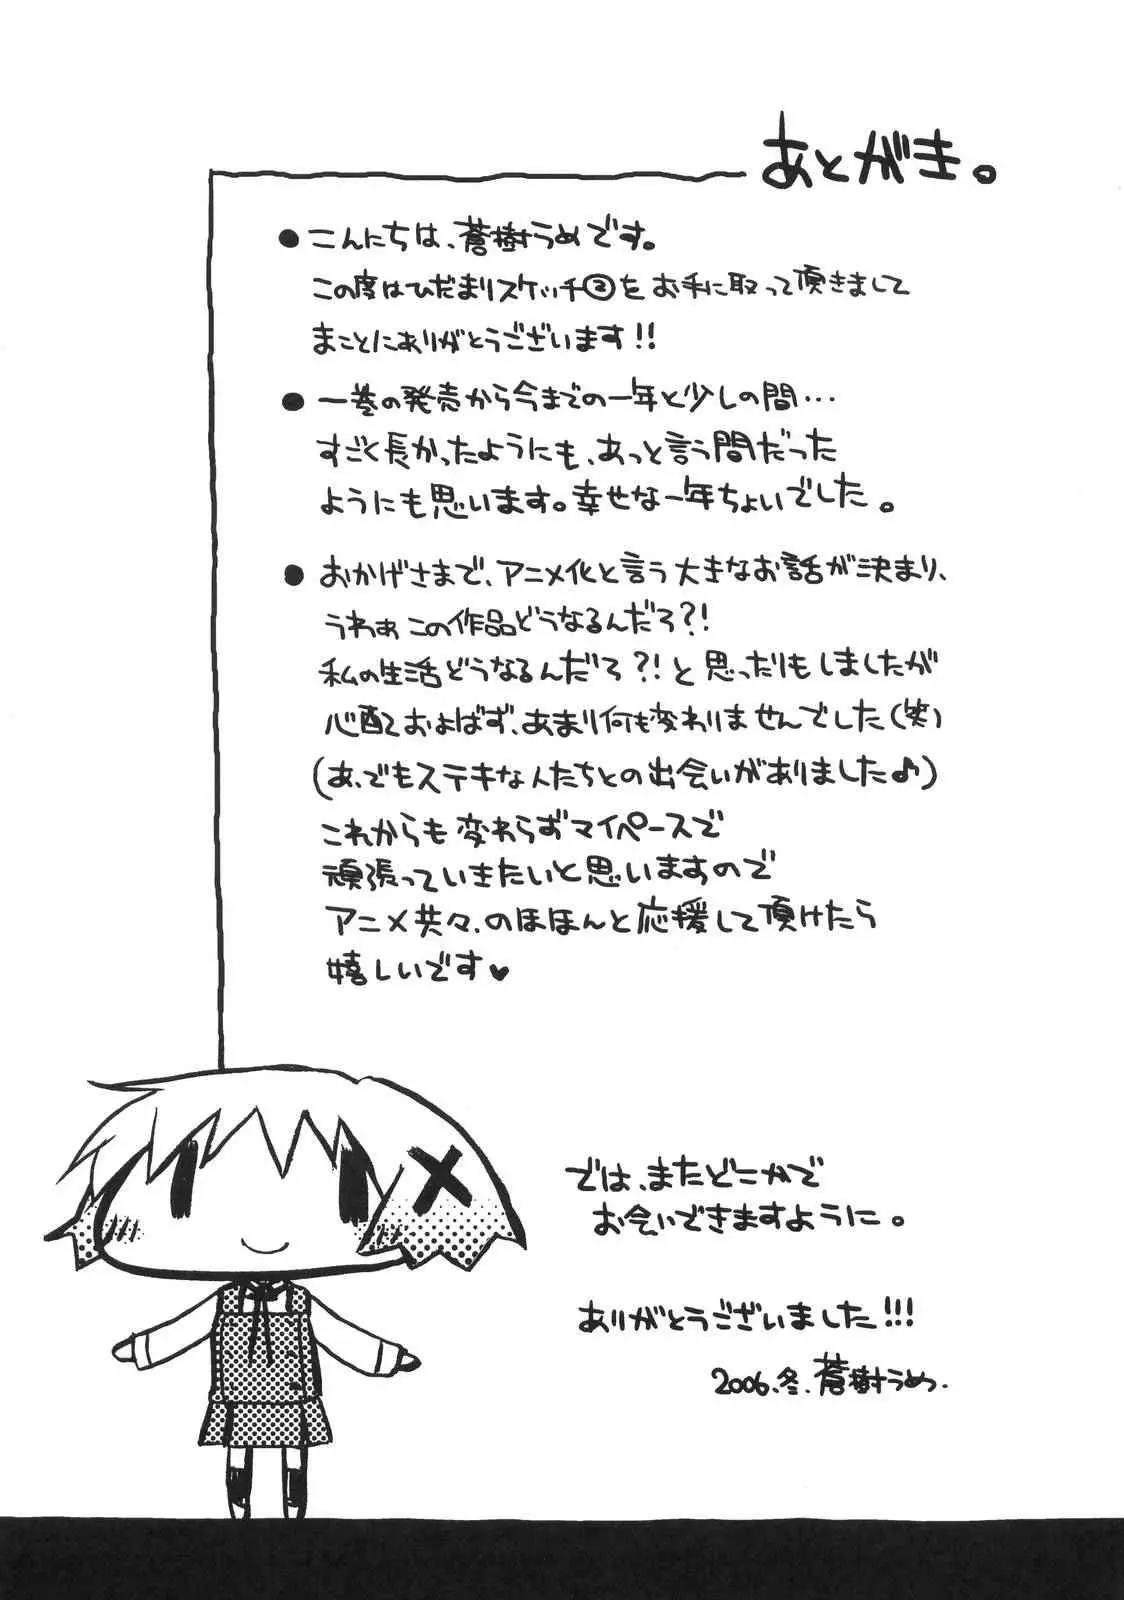 あとがき。
●こんにちは、蒼樹うめです。
この度はひだまりスケッチ②をお手に取って頂きまして
まことにありがとうございます!!
●一巻の発売から今までの一年と少しの間…
すごく長かったようにも、あっと言う間だった
ようにも思います。幸せな一年ちょいでした。
●おかげさまで、アニメ化と言う大きなお話が決まり、
うわぁこの作品どうなるんだろ?!
私の生活どうなるんだろ?!と思ったりもしましたが
心配におよばず、あまり何も変わりませんでした(笑)
(あ、でもステキな人たちとの出会いがありました♪)
これからも変わらずマイペースで
頑張っていきたいと思いますので
アニメ共々、のほほんと応援して頂けたら
嬉しいです♥
では、またどこかで
お会いできますように。
ありがとうございました!!!
2006.冬.蒼樹うめ.